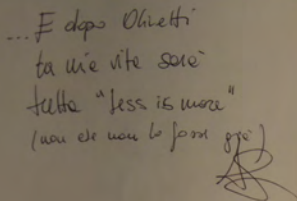 ...E dopo Olivetti
la mia vita sarà
tutta "less is more"
(non che non lo fosse già)